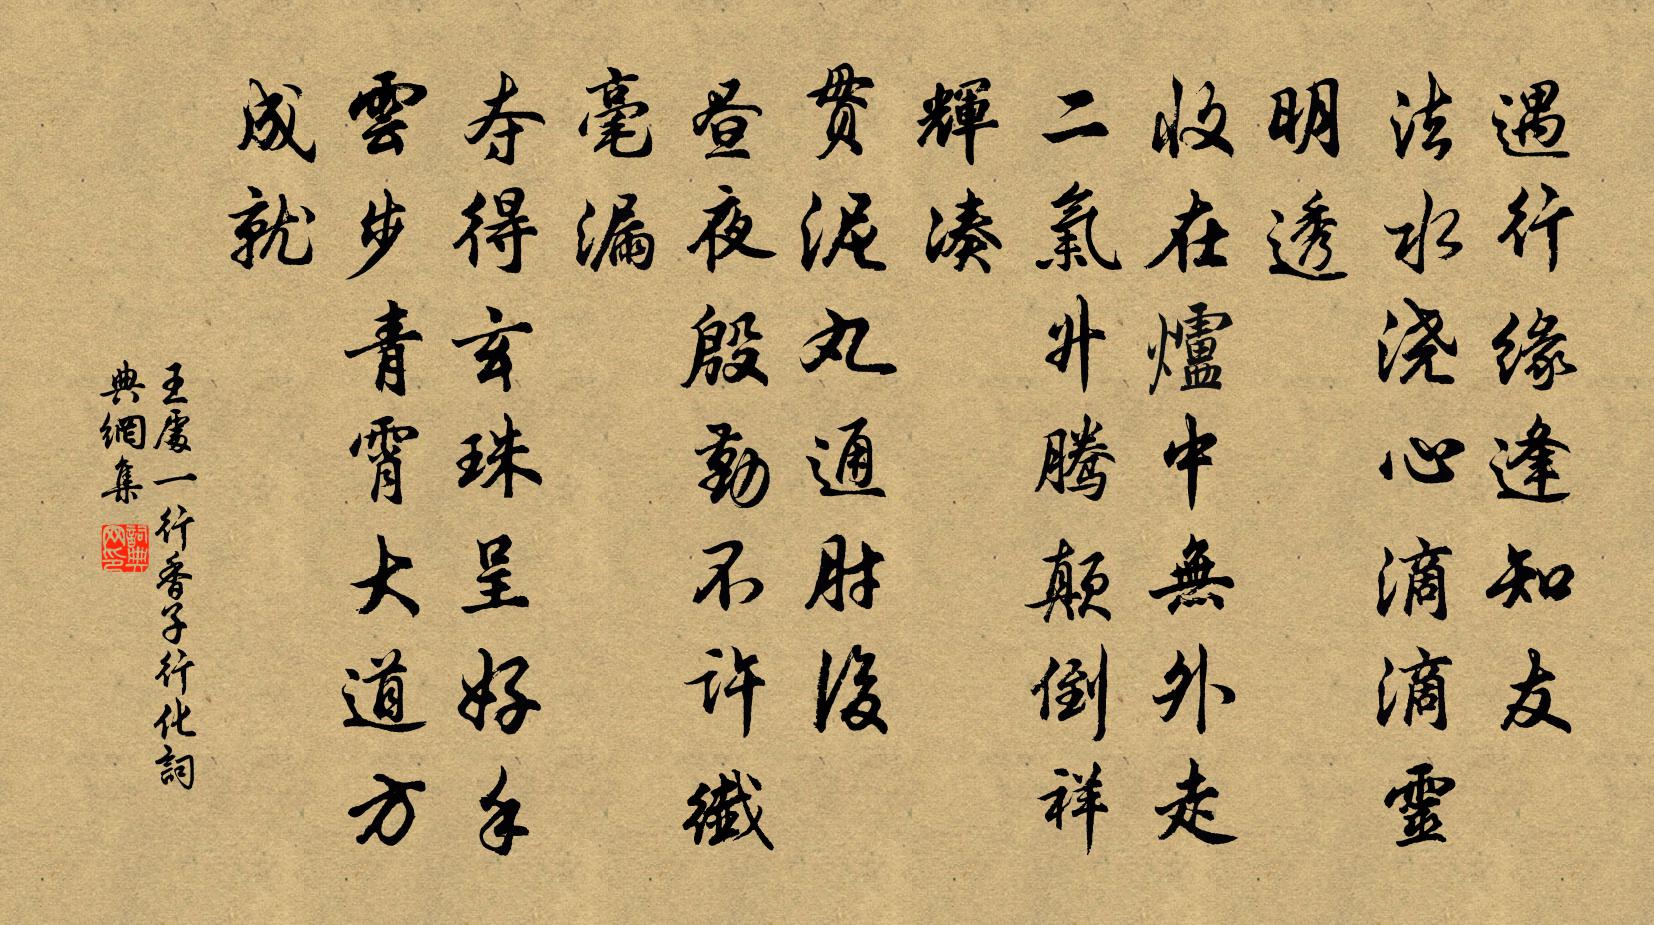 遇行緣逢知友
法水澆心滴滴靈
明透
收在爐中無外走
二氣升騰顛倒祥
輝湊
貫泥丸通肘後
晝夜殷勤不許纖
毫漏
奪得玄珠呈好手
雲步青霄大道方
成就
王處一行香子行化詞
典網集
詞典
网印